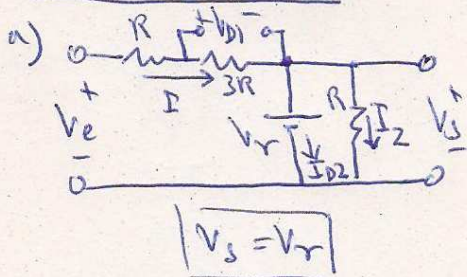 a) R + VD1 -
I 3R
+ Ve - Vr ID2 R I2 + Vs -
Vs = Vr